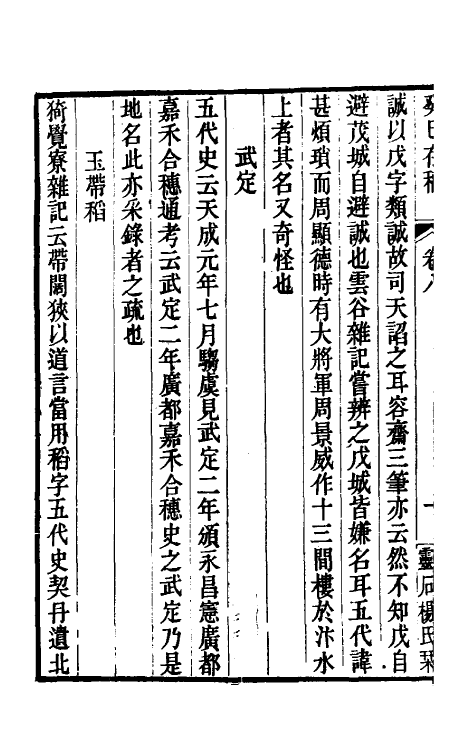 癸巳存稿 卷八 十 靈石楊氏栞
誠以戊字類誠故司天諂之耳容齋三筆亦云然不知戊自
避茂城自避誠也雲谷雜記嘗辨之戊城皆嫌名耳五代諱
甚煩瑣而周顯德時有大將軍周景威作十三間樓於汴水
上者其名又奇怪也
武定
五代史云天成元年七月騶虞見武定二年頒永昌憲廣都
嘉禾合穗通考云武定二年廣都嘉禾合穗史之武定乃是
地名此亦采錄者之疏也
玉帶稻
猗覺寮雜記云帶闊狹以道言當用稻字五代史契丹遺北